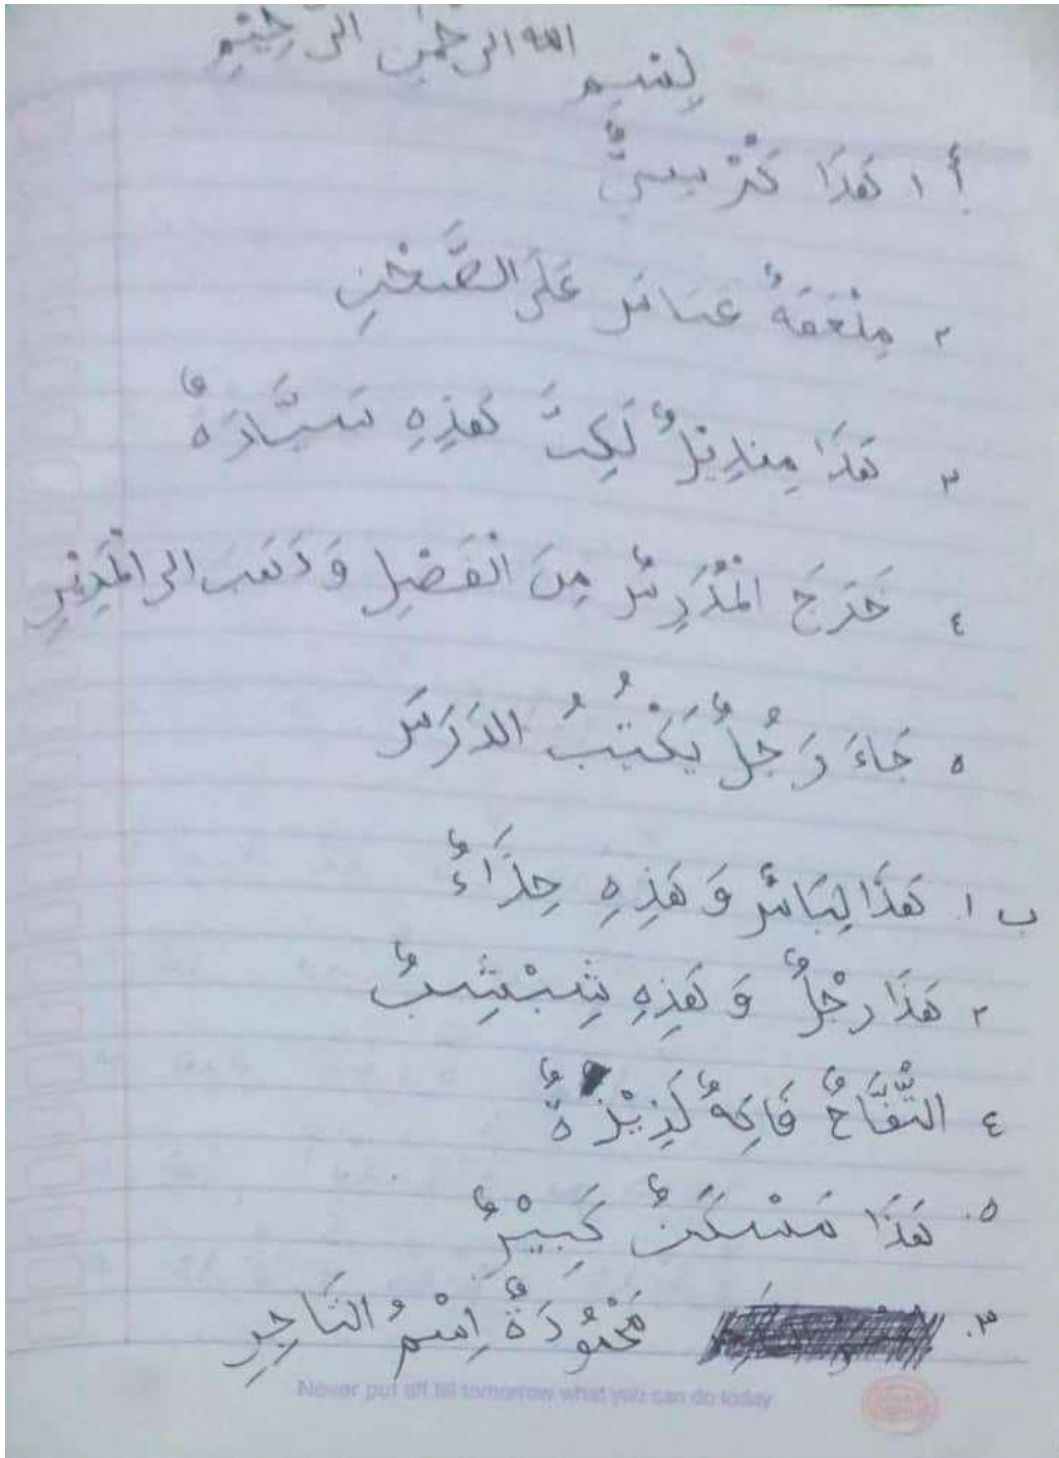 بسم الله الرحمن الرحيم
أ ١ هَذَا كُرْسِيٌّ
٢ مِلْعَقَةٌ عَلَى الصَّحْنِ
٣ هَذَا مِنْدِيْلٌ لَكِنَّ هَذِهِ سَيَّارَةٌ
٤ خَرَجَ الْمُدَرِسُ مِنَ الْفَصْلِ وَذَهَبَ الى الْمُدِيْرِ
٥ جَاءَ رَجُلٌ يَكْتُبُ الدَرَسَ
ب ١. هَذَا لِبَاسٌ وَ هَذِهِ حِذَاءٌ
٢ هَذَا رِجْلٌ وَ هَذِهِ شِبْشِبٌ
٤ التُّفَّاحُ فَاكِهَةٌ لَذِيْذَةٌ
٥. هَذَا مَسْكَنٌ كَبِيْرٌ
٣. اِسْمُ التَاجِرِ
Never put off till tomorrow what you can do today